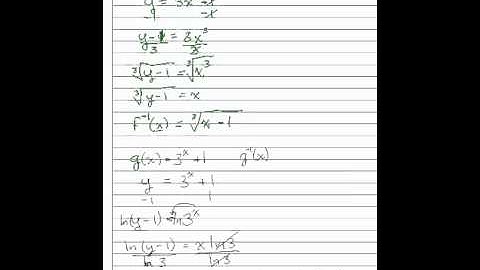 y = 3x
y-1 = 3x³
3
∛y-1 = ∛x³
∛y-1 = x
f⁻¹(x) = ∛x-1
g(x) = 3ˣ+1 g⁻¹(x)
y = 3ˣ+1
-1 1
ln(y-1) = ln3ˣ
ln(y-1) = x ln3
ln3 ln3